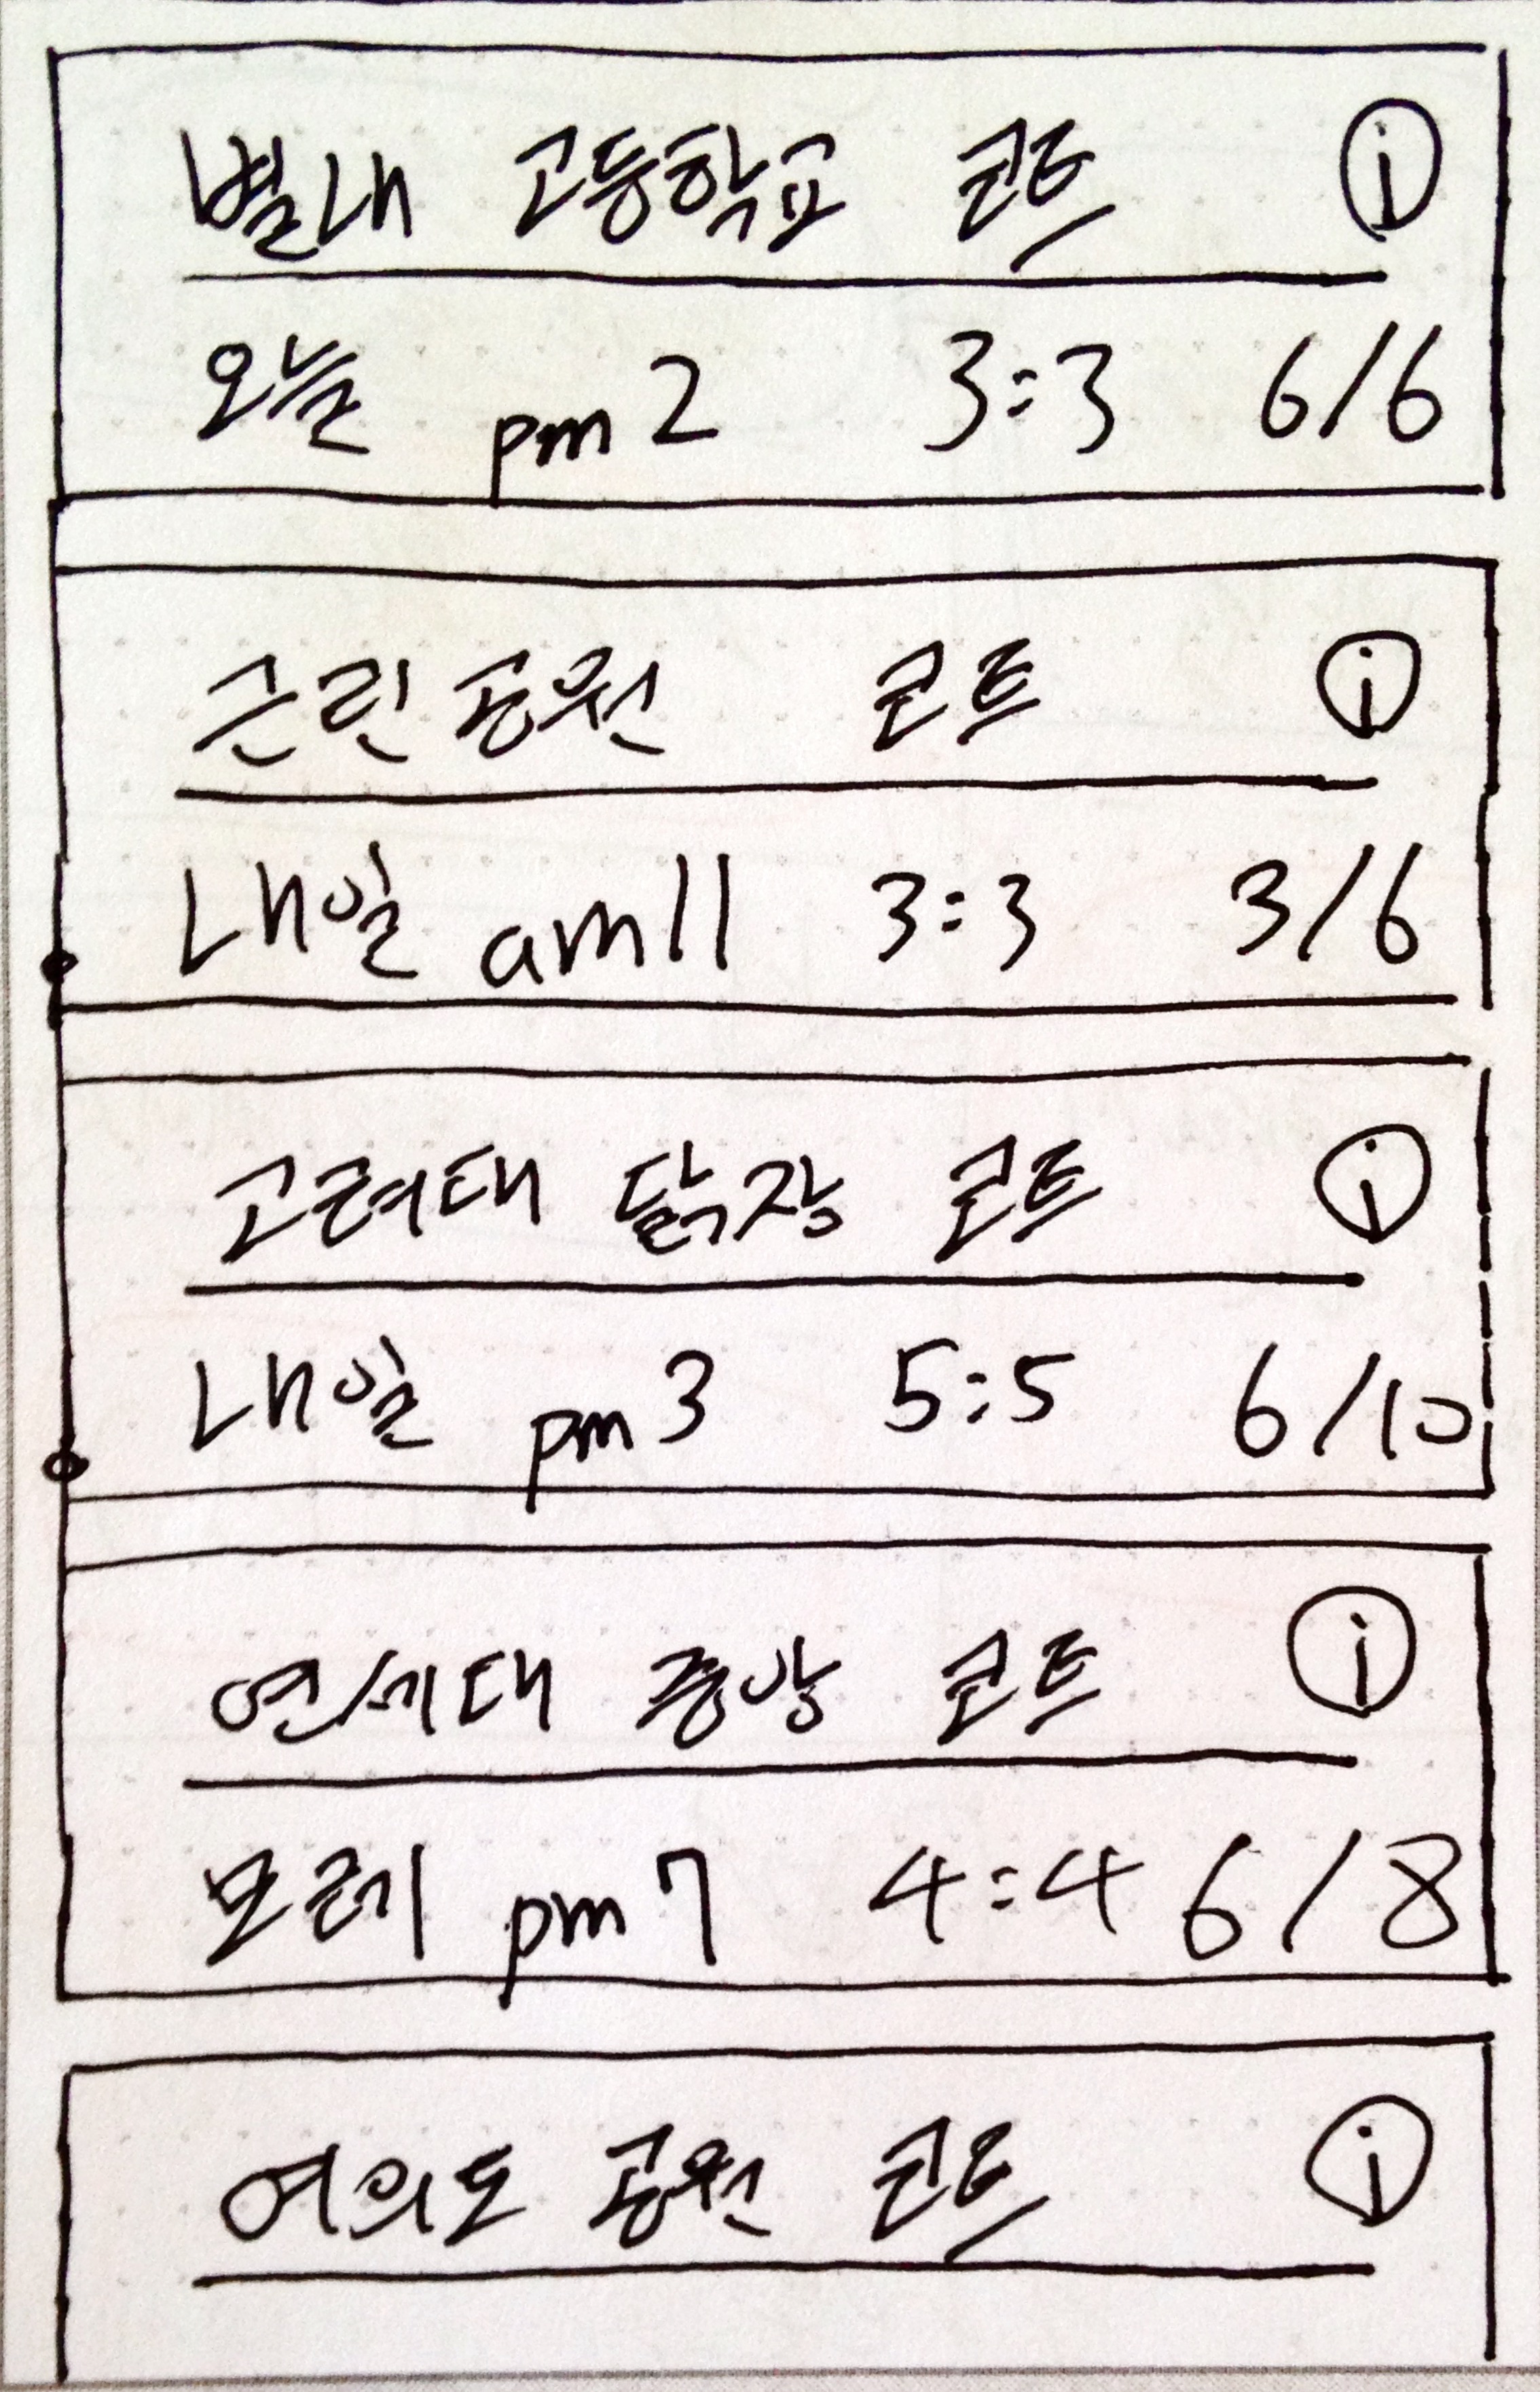 별내 고등학교 코트 i
오늘 pm 2 3:3 6/6
근린공원 코트 i
내일 am 11 3:3 3/6
고려대 닭장 코트 i
내일 pm 3 5:5 6/10
연세대 중앙 코트 i
모레 pm 7 4:4 6/8
여의도 공원 코트 i